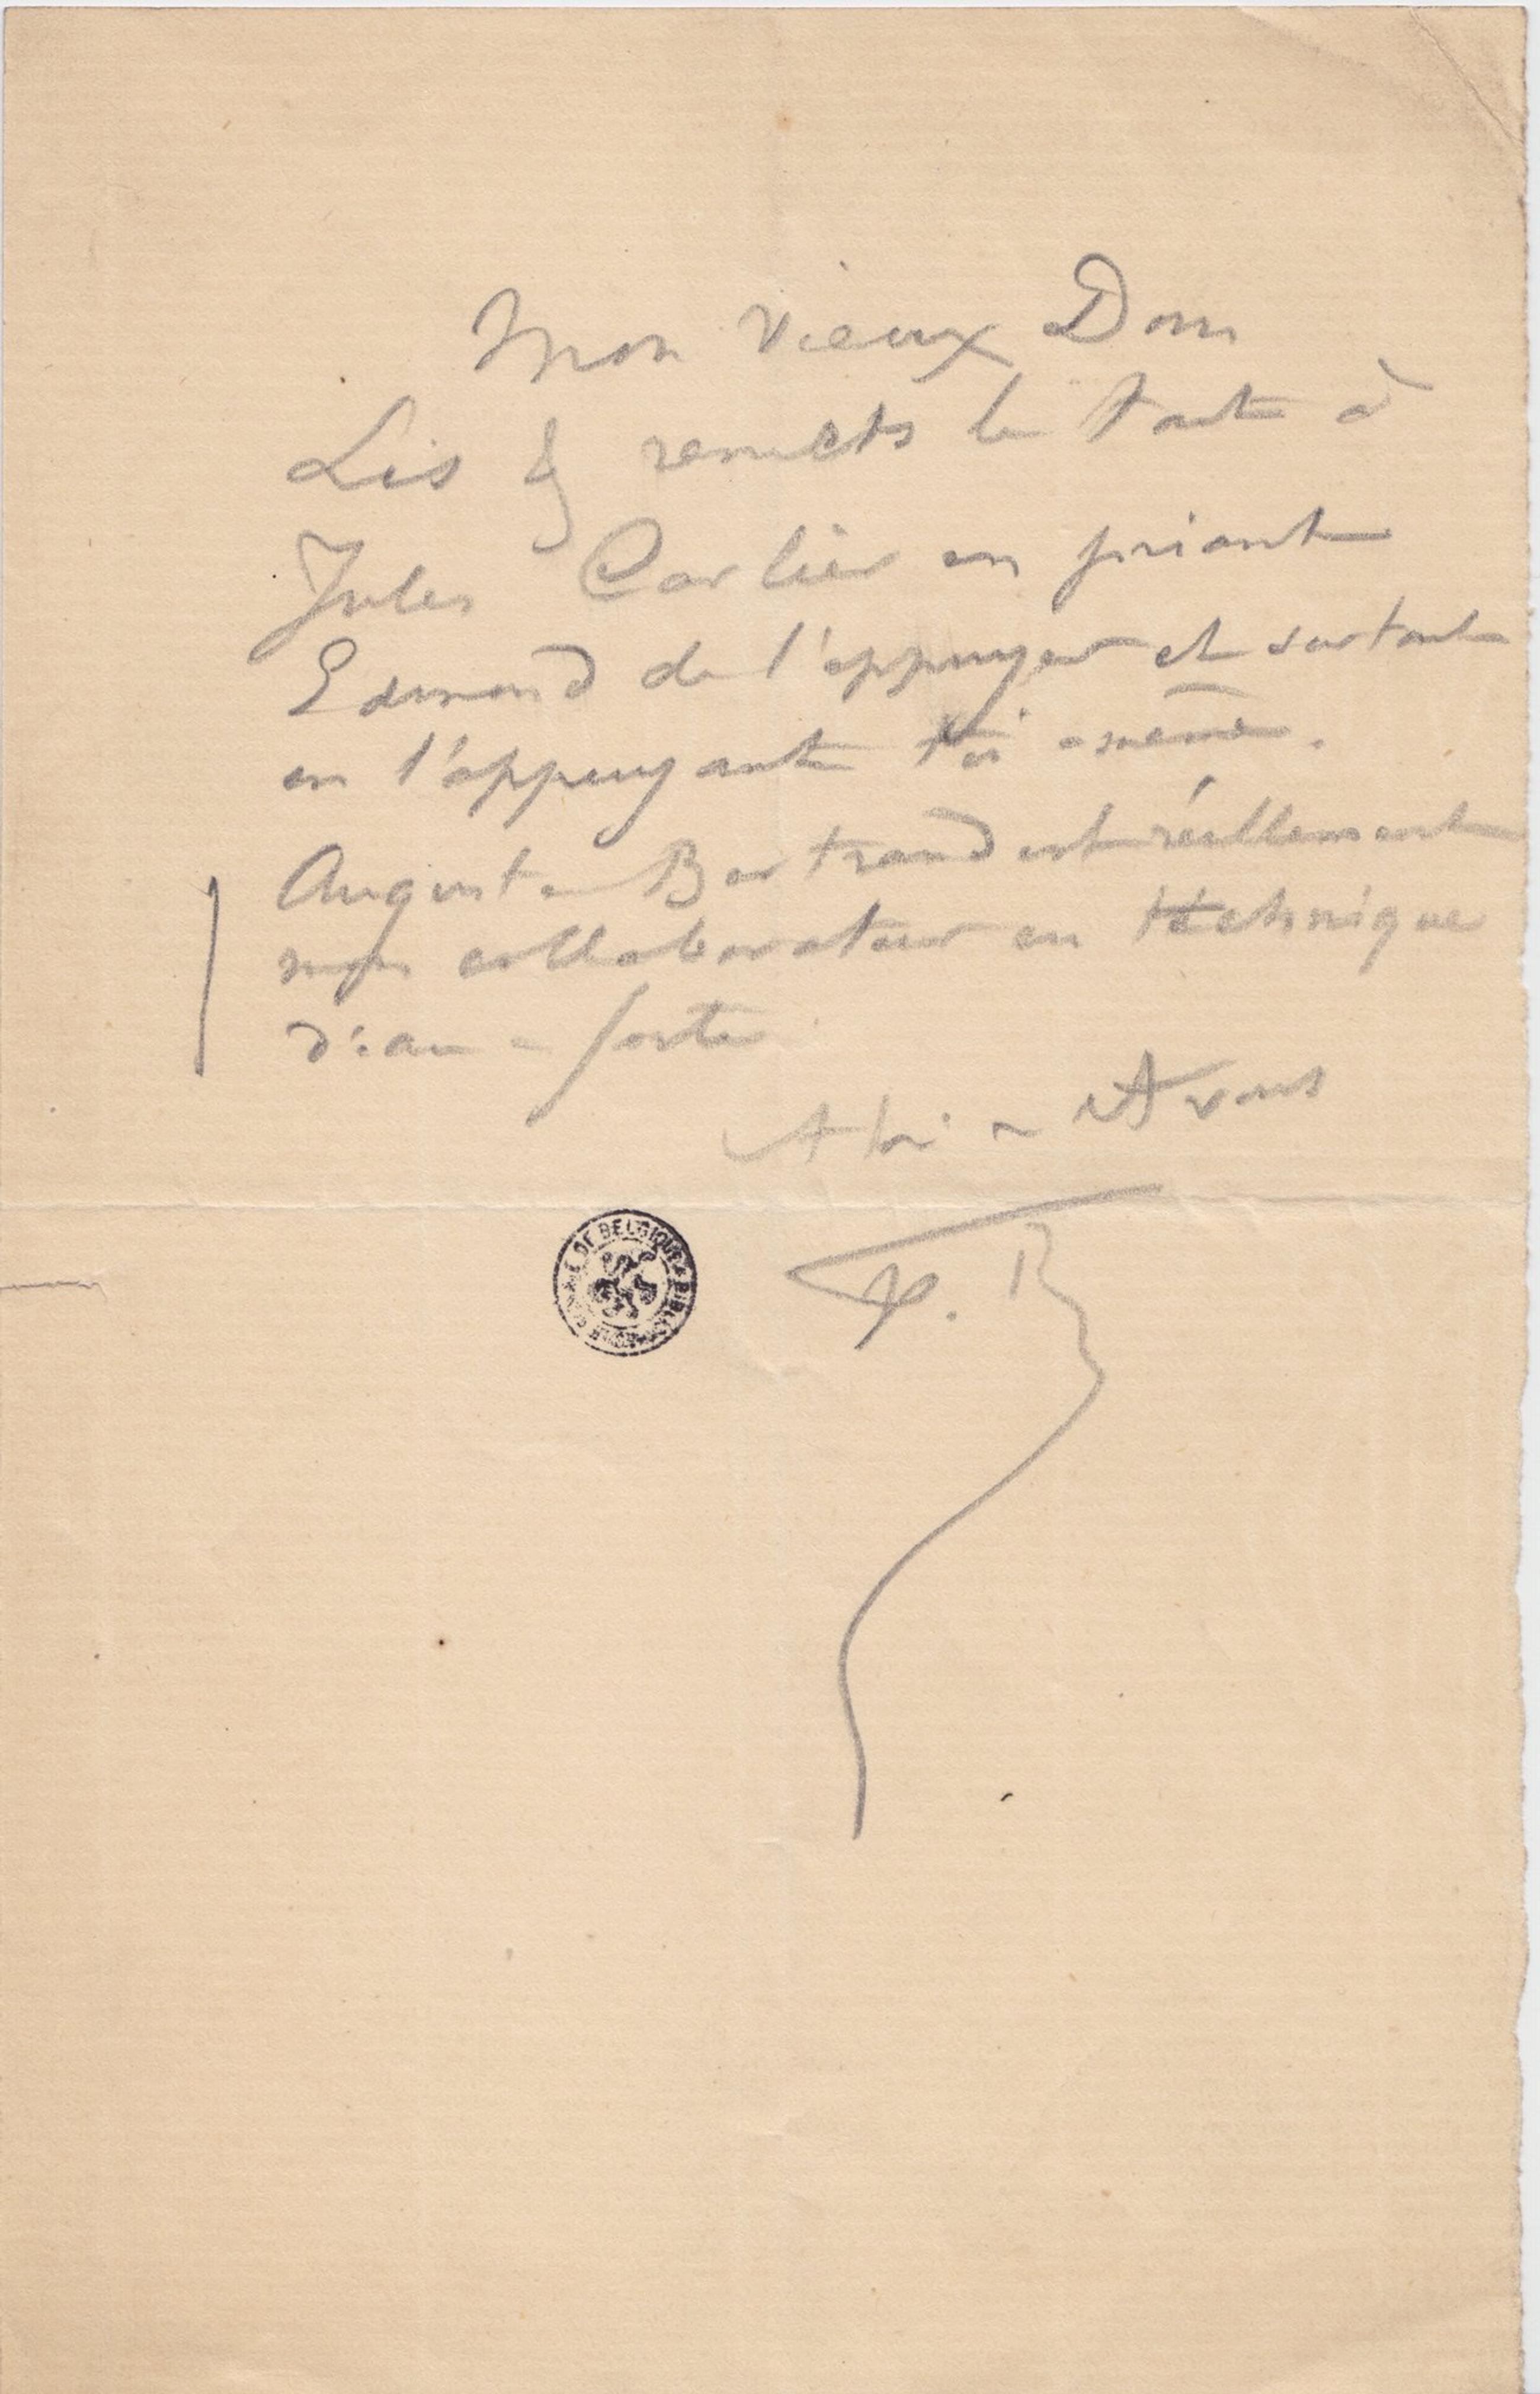 Mon vieux Dom
Lis & remets le tout à
Jules Carlier en priant
Edmond de l'appuyer et surtout
en l'appuyant toi-même.
Auguste Bertrand est réellement
mon collaborateur en technique
d'eau-forte
A toi & A vous
F. R
DE BELGIQUE